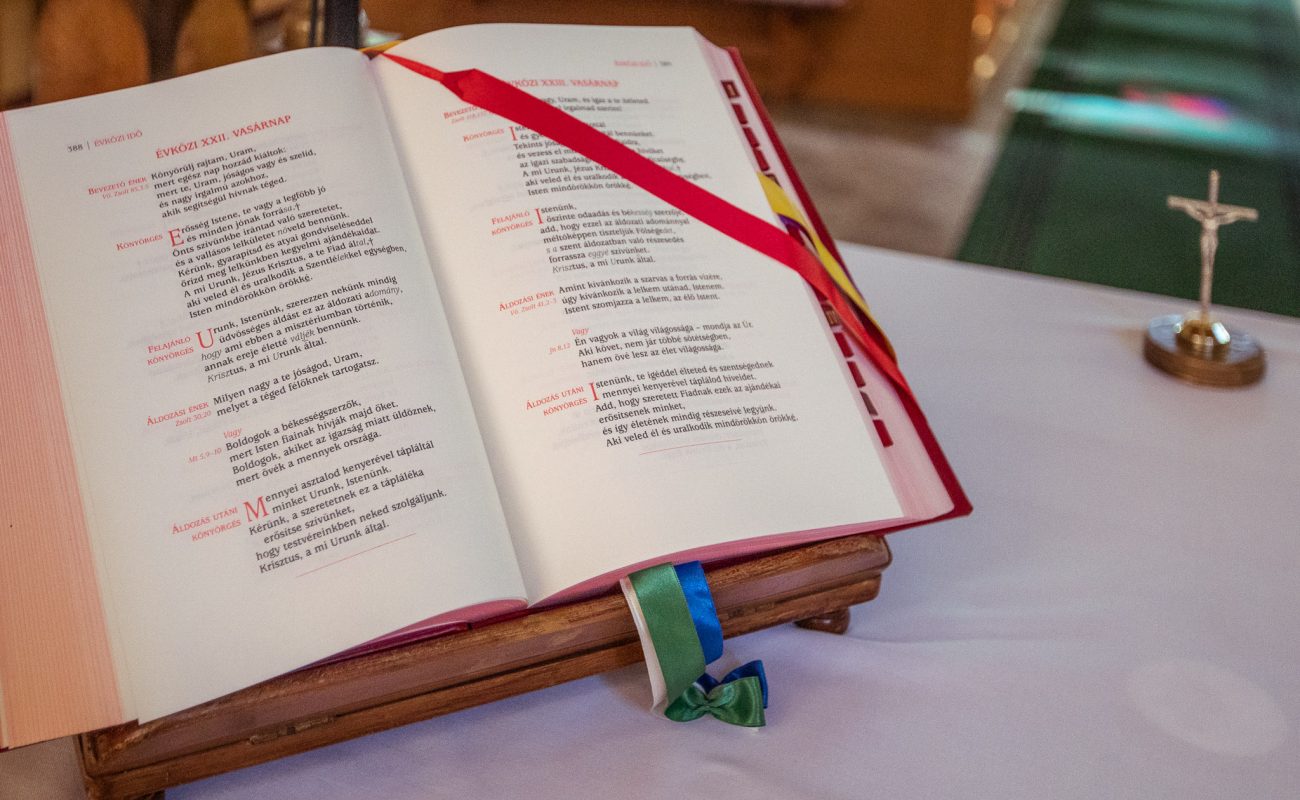 388 | ÉVKÖZI IDŐ
ÉVKÖZI XXII. VASÁRNAP
BEVEZETŐ ÉNEK
Vö. Zsolt 85,3.5
Könyörülj rajtam, Uram,
mert egész nap hozzád kiáltok:
mert te, Uram, jóságos vagy és szelíd,
és nagy irgalmú azokhoz,
akik segítségül hívnak téged.
KÖNYÖRGÉS
Erősség Istene, te vagy a legfőbb jó
és minden jónak forrása.†
Önts szívünkbe irántad való szeretetet,
és a vallásos lelkületet növeld bennünk.
Kérünk, gyarapítsd és atyai gondviseléseddel
őrizd meg lelkünkben kegyelmi ajándékaidat.
A mi Urunk, Jézus Krisztus, a te Fiad által,†
aki veled él és uralkodik a Szentlélekkel egységben,
Isten mindörökkön örökké.
FELAJÁNLÓ
KÖNYÖRGÉS
Urunk, Istenünk, szerezzen nekünk mindig
üdvösséges áldást ez az áldozati adomány,
hogy ami ebben a misztériumban történik,
annak ereje életté váljék bennünk.
Krisztus, a mi Urunk által.
ÁLDOZÁSI ÉNEK
Zsolt 30,20
Milyen nagy a te jóságod, Uram,
melyet a téged félőknek tartogatsz.
Vagy
Mt 5,9-10
Boldogok a békességszerzők,
mert Isten fiainak hívják majd őket.
Boldogok, akiket az igazság miatt üldöznek,
mert övék a mennyek országa.
ÁLDOZÁS UTÁNI
KÖNYÖRGÉS
Mennyei asztalod kenyerével tápláltál
minket Urunk, Istenünk.
Kérünk, a szeretetnek ez a tápláléka
erősítse szívünket,
hogy testvéreinkben neked szolgáljunk.
Krisztus, a mi Urunk által.
ÉVKÖZI IDŐ | 389
ÉVKÖZI XXIII. VASÁRNAP
BEVEZETŐ
Uram, és igaz a te ítéleted.
irgalmad szerint!
KÖNYÖRGÉS
és gy bennünket.
Tekints
és vezess el híveidet
az igazi szabadság
A mi Urunk, Jézus Kri
aki veled él és uralkodik egységben,
Isten mindörökkön örökké.
FELAJÁNLÓ
KÖNYÖRGÉS
Istenünk,
őszinte odaadás és békesség szerzője,
add, hogy ezzel az áldozati adománnyal
méltóképpen tiszteljük Fölségedet,
s a szent áldozatban való részesedés
forrassza eggyé szívünket.
Krisztus, a mi Urunk által.
ÁLDOZÁSI ÉNEK
Vö. Zsolt 41,2-3
Amint kívánkozik a szarvas a forrás vizére,
úgy kívánkozik a lelkem utánad, Istenem.
Istent szomjazza a lelkem, az élő Istent.
Vagy
Jn 8,12
Én vagyok a világ világossága – mondja az Úr.
Aki követ, nem jár többé sötétségben,
hanem övé lesz az élet világossága.
ÁLDOZÁS UTÁNI
KÖNYÖRGÉS
Istenünk, te igéddel élteted és szentségednek
mennyei kenyerével táplálod híveidet.
Add, hogy szeretett Fiadnak ezek az ajándékai
erősítsenek minket,
és így életének mindig részeseivé legyünk.
Aki veled él és uralkodik mindörökkön örökké.